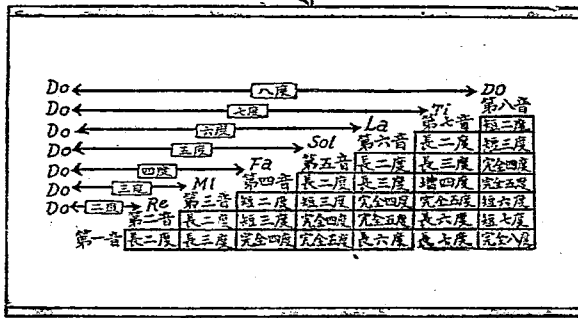 Do 八度 DO
Do 七度 Ti 第八音
Do 六度 La 第七音 短二度
Do 五度 Sol 第六音 長二度 短三度
Do 四度 Fa 第五音 長二度 長三度 完全四度
Do 三度 MI 第四音 長二度 長三度 增四度 完全五度
Do 二度 Re 第三音 短二度 短三度 完全四度 完全五度 短六度
第二音 長二度 短三度 完全四度 完全五度 長六度 短七度
第一音 長二度 長三度 完全四度 完全五度 長六度 長七度 完全八度